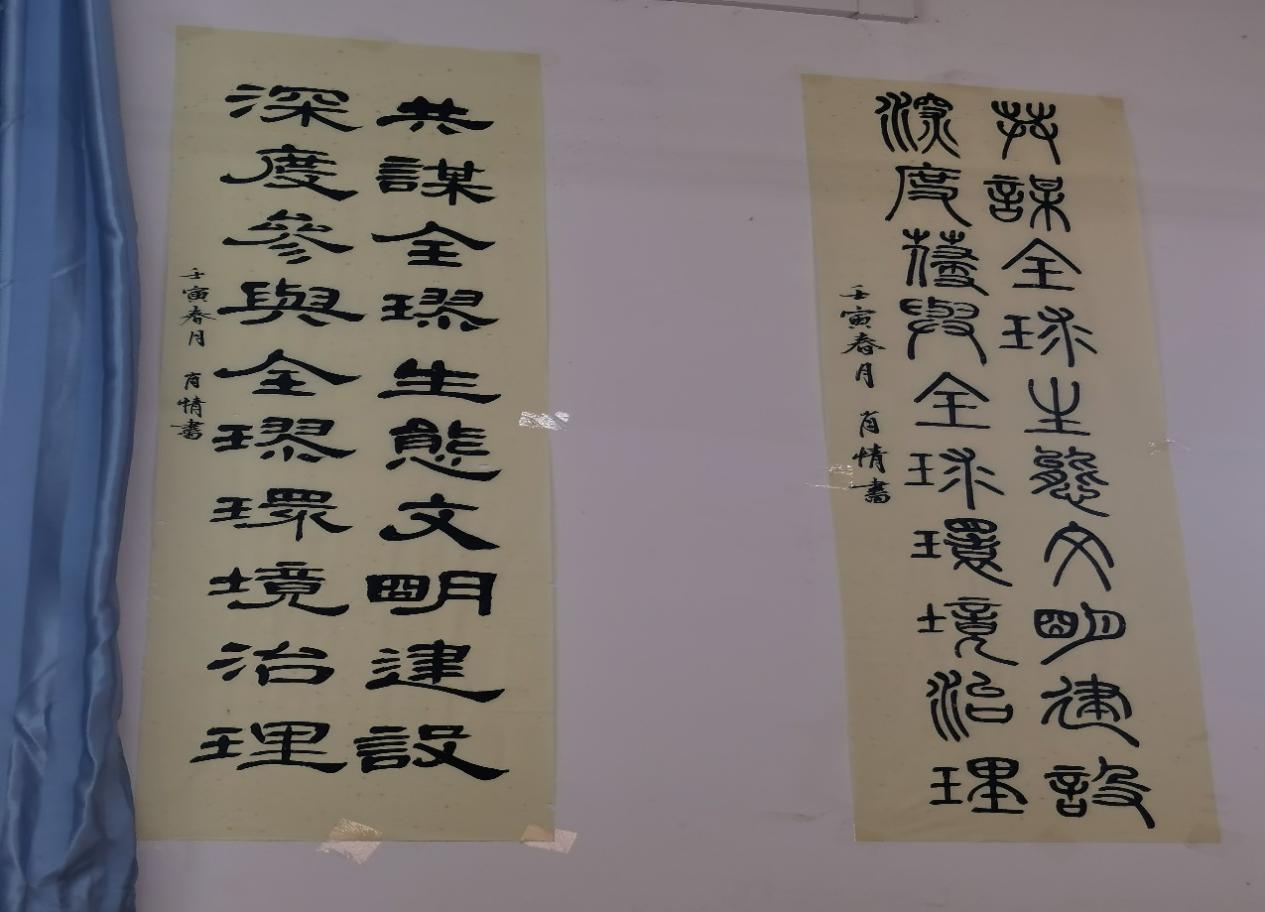 共謀全球生態文明建設
深度參與全球環境治理
壬寅春月 肖情書
共謀全球生態文明建設
深度參與全球環境治理
壬寅春月 肖情書